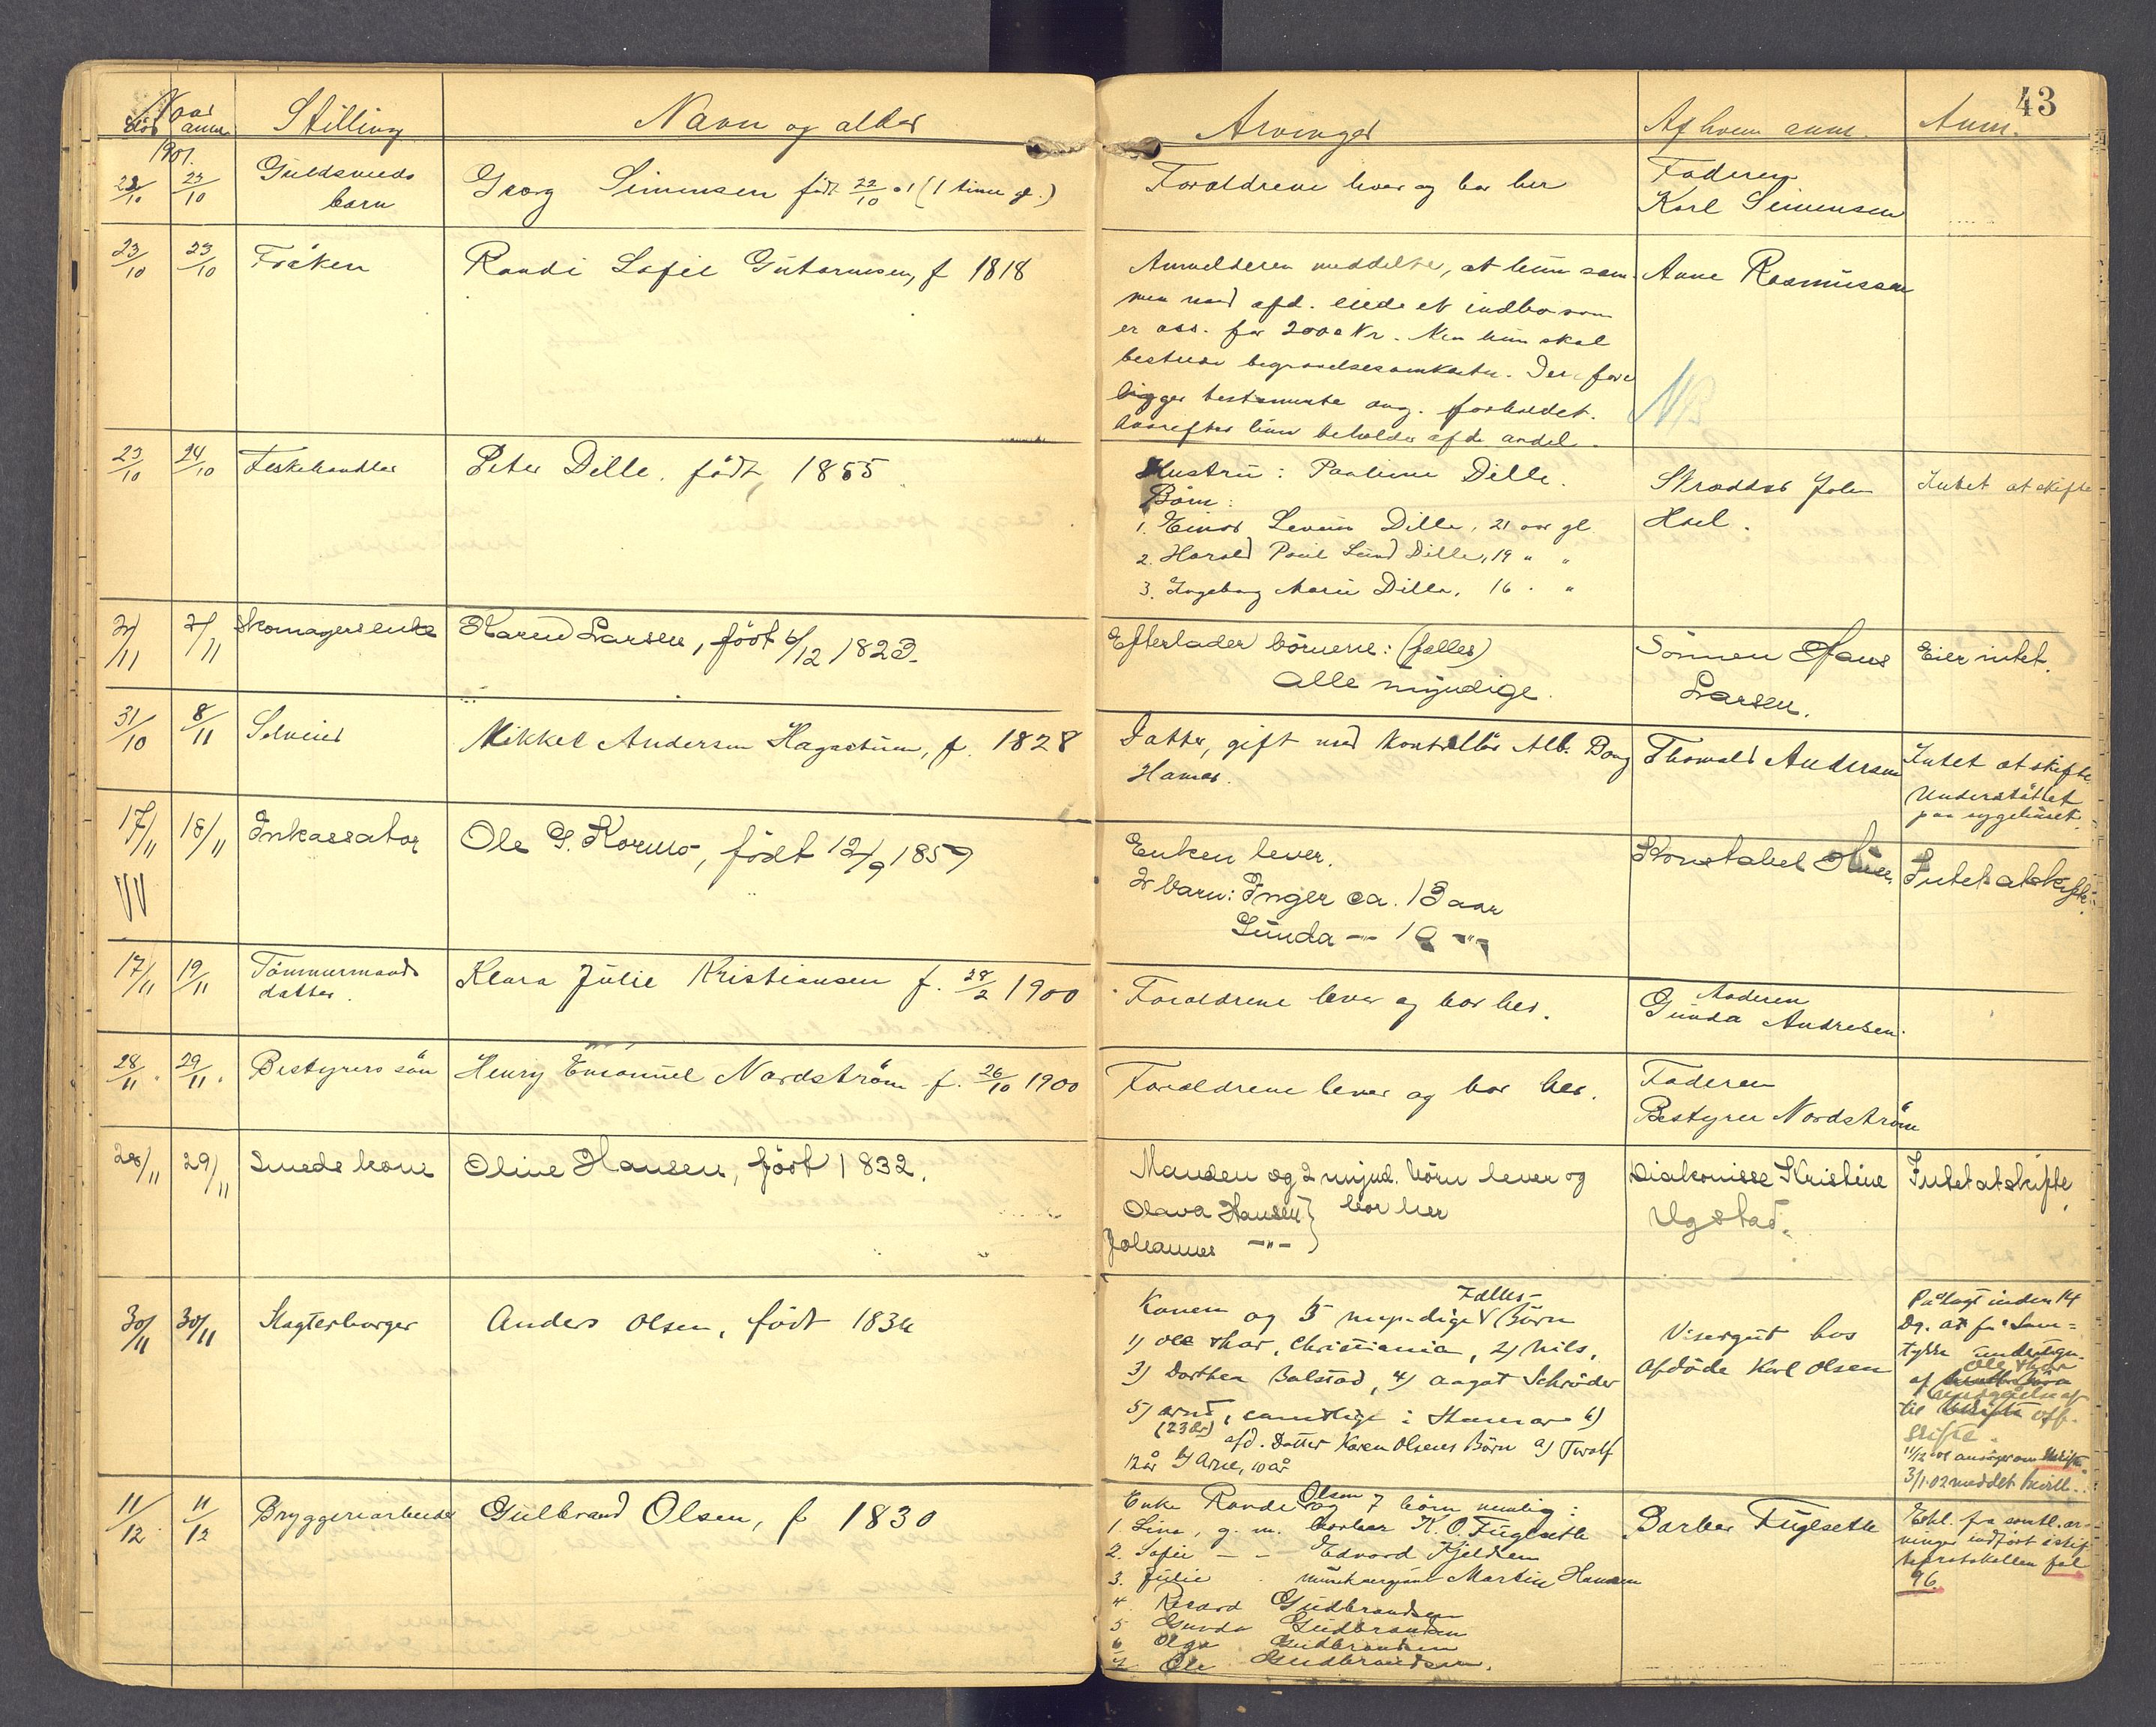 43
Naar
död anm.
Stilling
Navn og alder
Arvinger
Af hvem anm.
Anm.
1901.
22/10 23/10 Guldsmeds
barn
Georg Simensen född 22/10 01 (1 time gl.)
Forældrene lever og bor her
Faderen
Karl Simensen
23/10 23/10 Fröken
Randi Sofie Gutormsen, f 1818
Anmelderen meddelte, at hun sam-
men med afd. eiede et indbo som
er ass. for 2000 Kr. Men hun skal
bestride begravelsesomkostn. Der fore
ligger testamente ang. forholdet.
hvorefter hun beholder afdes andel.
Anne Rasmussen
NB
23/10 24/10 Fiskehandler
Peter Dille. född, 1855
Hustru: Pauline Dille.
Börn:
1. Einar Levin Dille, 21 aar gl
2. Harald Paul Lund Dille, 19 " "
3. Ingeborg Marie Dille, 16 " "
Skrædder John
Hoel.
Intet at skifte
2/11 2/11 Skomagerenke
Karen Larsen, född 6/12 1823.
Efterlader börnene: (fælles)
alle myndige.
Sönnen Hans
Larsen.
Eier intet.
31/10 8/11 Selveier
Mikkel Andersen Hagestuen, f. 1828
Datter, gift med Kontrollör Alb. Bong
Hamar.
Thorvald Andersen
Intet at skifte
Understöttet
paa sygehuset.
17/11 18/11 Inkassator
Ole G. Kormo, födt 12/9 1857
Enken lever.
2 barn: Inger ca. 13 aar
Gunda -"- 10 -"-
Konstabel
Intet at skifte.
17/11 19/11 Tömmermands
datter.
Klara Julie Kristiansen f. 28/2 1900
Forældrene lever og bor her.
Moderen
Gunda Andresen.
28/11. 29/11. Bestyrers sön
Henry Emanuel Nordström f. 26/10 1900
Forældrene lever og bor her.
Faderen
Bestyrer Nordström
28/11 29/11 Smeds kone
Oline Hansen, födt 1832.
Manden og 2 mynd. börn lever og
Olava Hansen } bor her
Johannes -"-
Diakonisse Kristine
Ugstad.
Intet at skifte.
30/11 30/11 Slagterborger
Anders Olsen, födt 1834
Konen og 5 myndige Fælles-Börn
1) Ole Thor, Christiania, 2) Nils,
3) Dorthea Balstad, 4) Aagot Schröder
5) Arnt, samtlige i Hamar 6)
(23 år) afd. Datter Karen Olsens Börn a) Torolf
12 år b) Arne, 10 år
Visergut hos
afdöde Karl Olsen
Pålagt inden 14
Dg. at få Sam=
tykke
af Ole Thor
til off.
skifte.
11/12 01 ansöger om
3/1 02 meddelt bevill.
11/12. 11/12 Bryggeriarbeider
Gulbrand Olsen, f 1830
Enke Randi Olsen og 7 börn nemlig:
1. Lina, g. m. barber K. O. Fuglseth
2. Sofie - - Edvard Kjeldsen
3. Julie musiksergeant Martin Hansen
4. Rikard Gudbrandsen
5 Gunda Gudbrandsen
6 Olga Gudbrandsen
7 Ole Gudbrandsen.
Barber Fuglseth
Erkl. fra samtl. ar-
vinger indfört i skif-
teprotokollen fol
96.